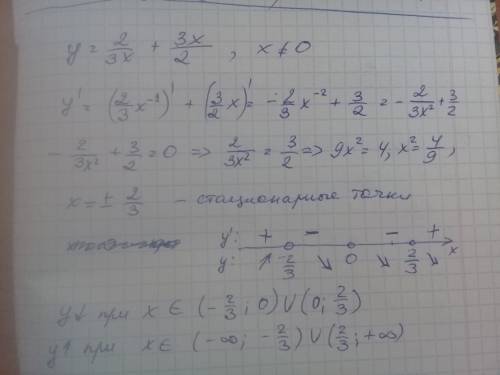 y = 2/3x + 3x/2 , x ≠ 0
y' = (2/3 x⁻¹)' + (3/2 x)' = -2/3 x⁻² + 3/2 = - 2/3x² + 3/2
- 2/3x² + 3/2 = 0 => 2/3x² = 3/2 => 9x² = 4, x² = 4/9 ;
x = ± 2/3 - стационарные точки
y': + - - + x
y: ↗ -2/3 ↘ 0 ↘ 2/3 ↘
y↓ при x ∈ (-2/3; 0) ∪ (0; 2/3)
y↑ при x ∈ (-∞; -2/3) ∪ (2/3; +∞)